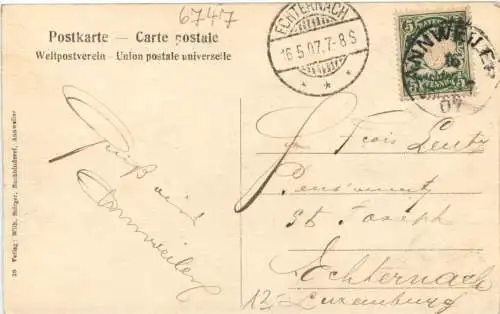 6747
Postkarte — Carte postale
Weltpostverein - Union postale universelle
ECHTERNACH
16.5.07.7-8 S
BAYERN
5
5
PFENNIG
ANNWEILER
16
07
Gruß aus
Annweiler
Lentz
St Joseph
Echternach
Luxemburg
12
38 Verlag: Wilh. Sölrger, Buchbinderei, Annweiler